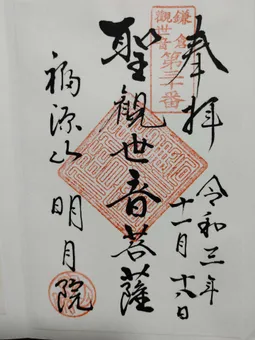 奉拝
鎌倉
觀世音
第三十番
令和三年
十一月十六日
聖觀世音菩薩
福源山 明月院